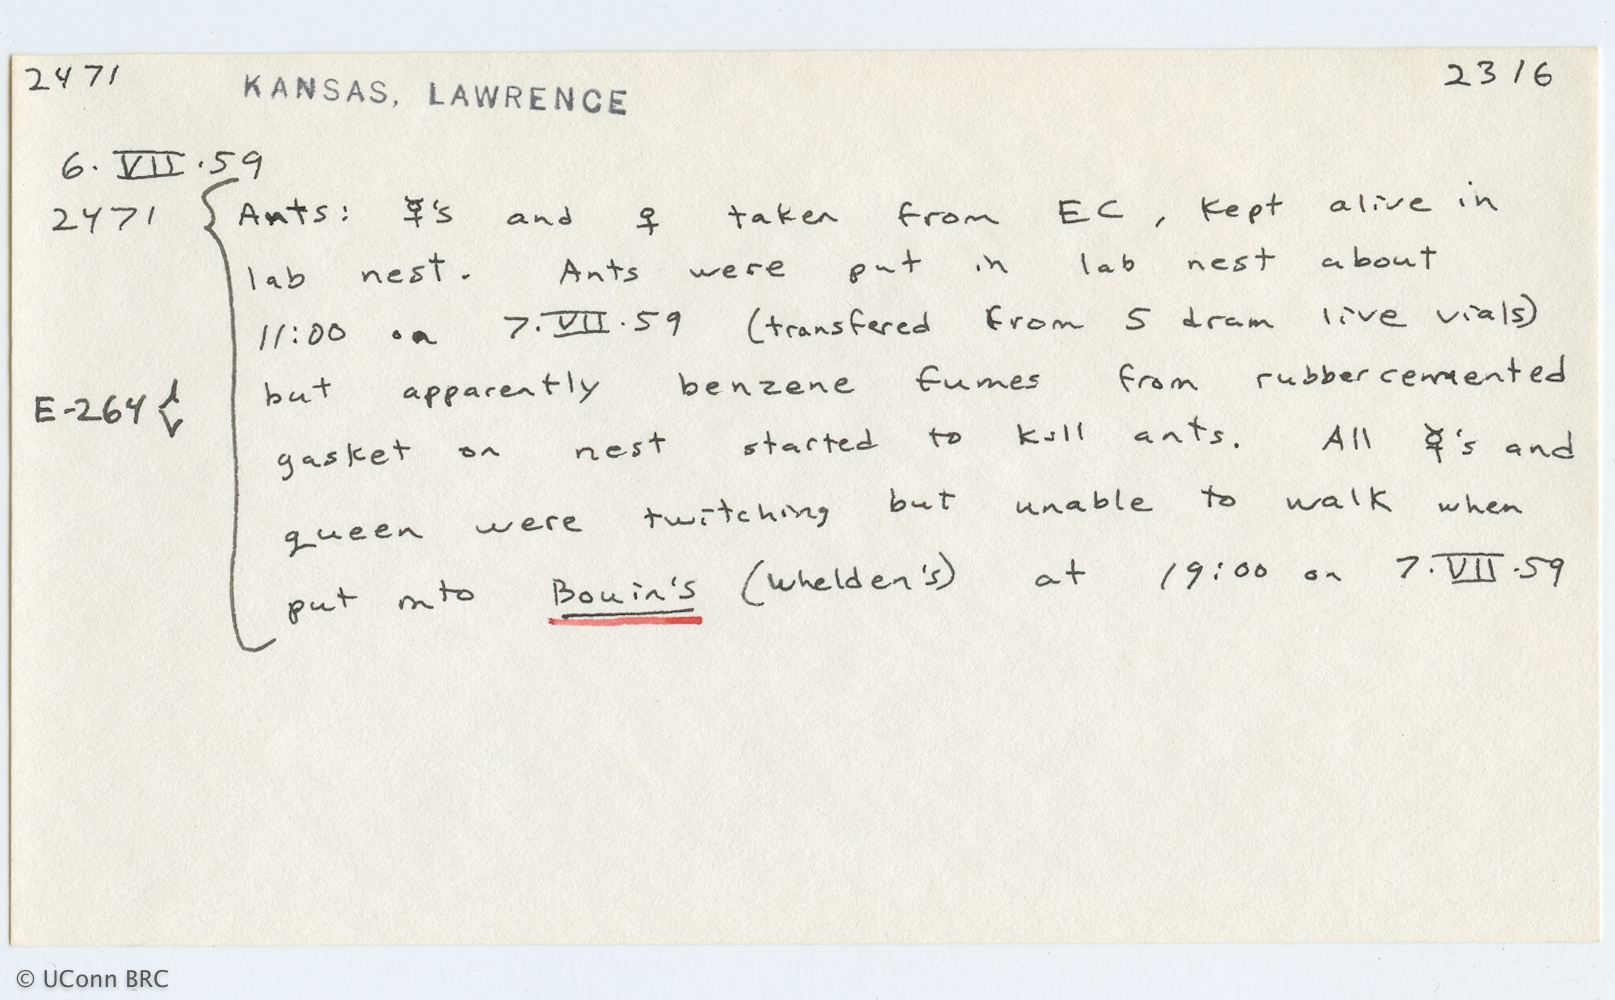 2471 KANSAS, LAWRENCE 2316
6. VII .59
2471 { Ants: ☿'s and ♀ taken from EC, kept alive in
lab nest. Ants were put in lab nest about
11:00 on 7. VII .59 (transfered from 5 dram live vials)
E-264 { but apparently benzene fumes from rubber cemented
gasket on nest started to kill ants. All ☿'s and
queen were twitching but unable to walk when
put into Bouin's (Whelden's) at 19:00 on 7. VII .59
© UConn BRC